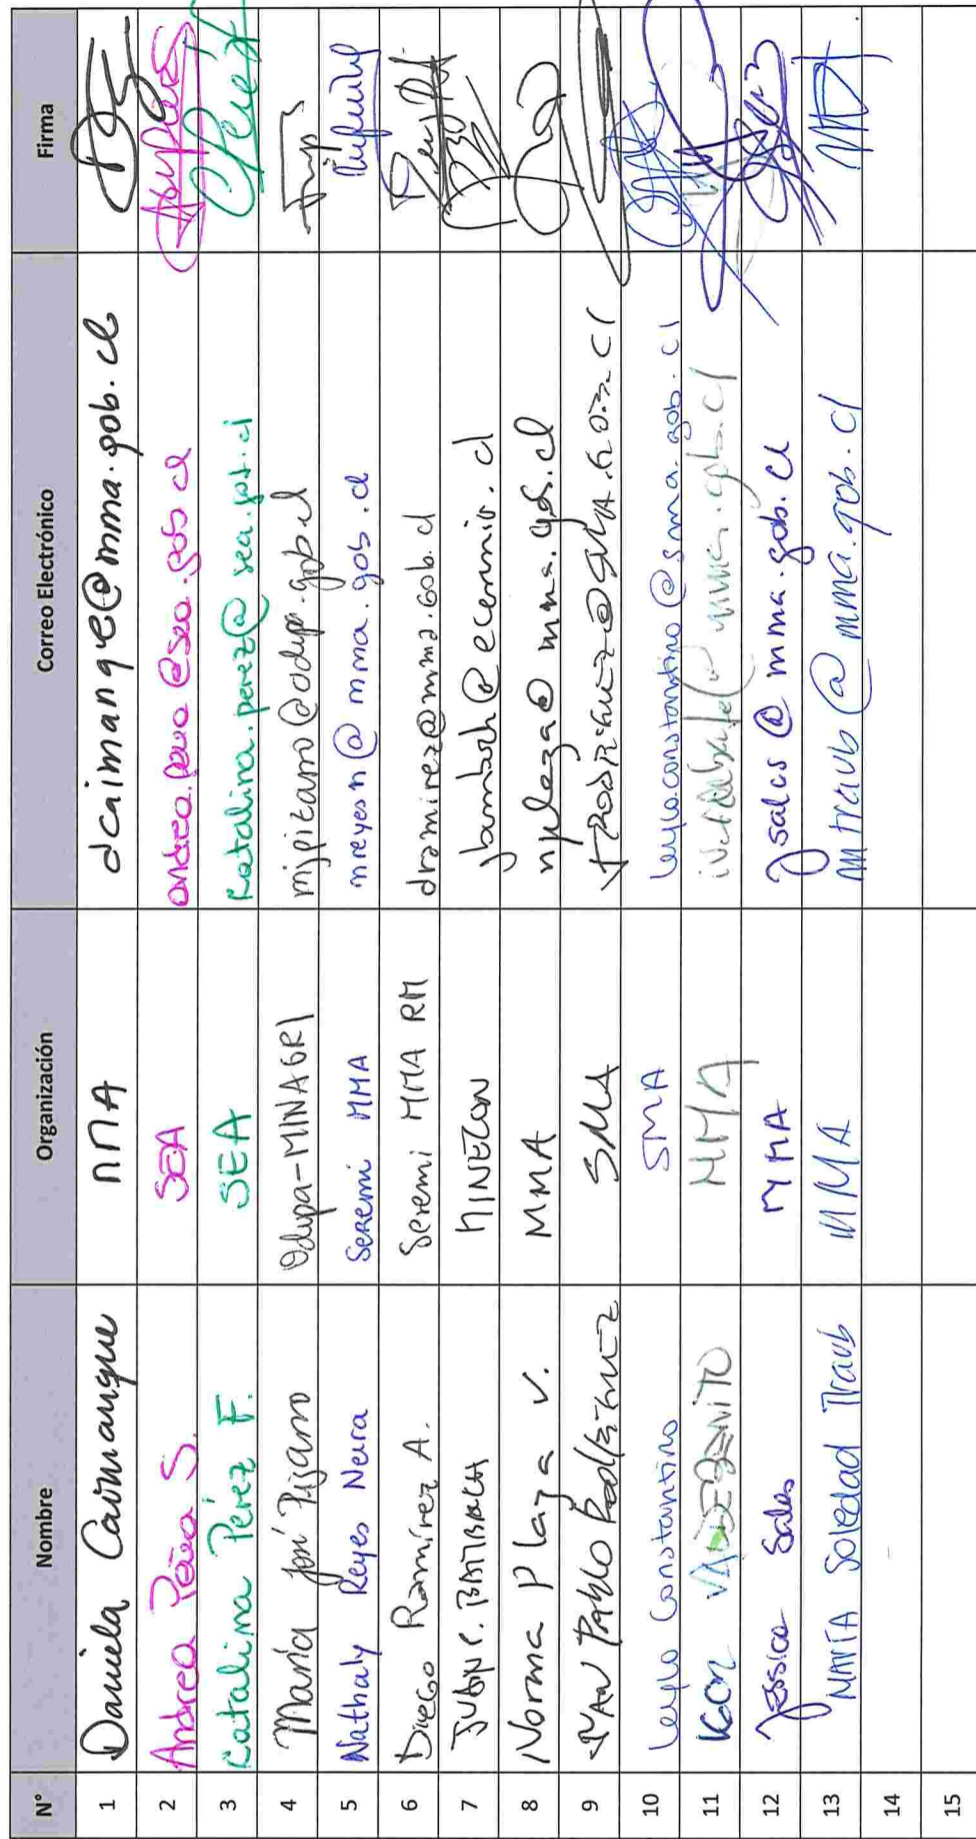 N° Nombre Organización Correo Electrónico Firma
1 Daniela Caimanque MMA dcaimanque@mma.gob.cl
2 Andrea Peña S. SEA andrea.pena@sea.gob.cl
3 Catalina Pérez F. SEA catalina.perez@sea.gob.cl
4 María José Pizarro Odepa-MINAGRI mjpizarro@odepa.gob.cl
5 Nathaly Reyes Neira Seremi MMA nreyesn@mma.gob.cl
6 Diego Ramírez A. Seremi MMA RM dramirez@mma.gob.cl
7 JUAN C. MINECON @economia.cl
8 Norma Plaza V. MMA nplaza@mma.gob.cl
9 JUAN PABLO RODRÍGUEZ SMA
10 Leylo Constantino SMA leylo.constantino@sma.gob.cl
11 IGOR VALDEBENITO MMA
12 Jessica Salas MMA jsalas@mma.gob.cl
13 MARÍA Soledad Traub MMA mtraub@mma.gob.cl
14
15